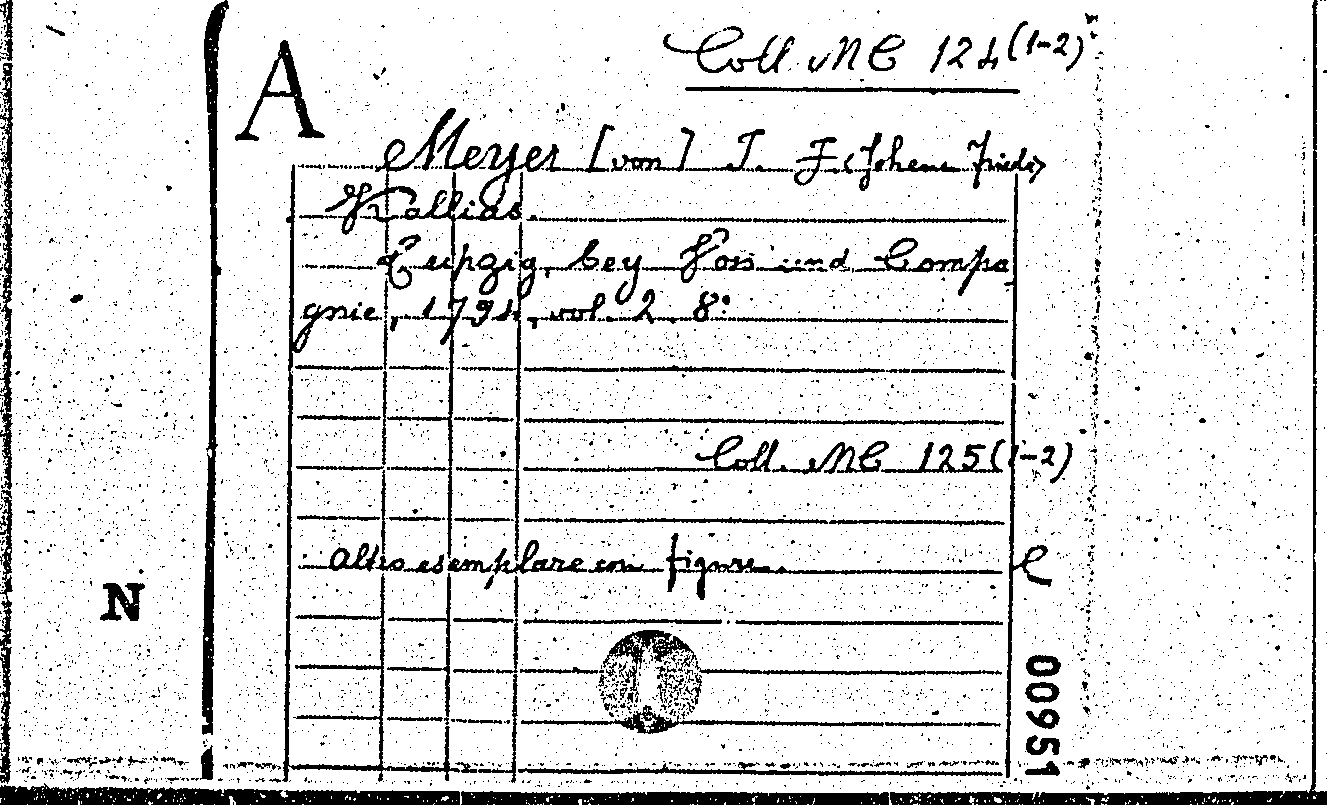 Coll. MC 124(1-2)
A
Meyer [von] J. F. (Johann Friedr)
Kallias.
Leipzig, bey Voss und Compa
gnie, 1794, vol. 2. 8°
Coll. MC 125(1-2)
Altro esemplare con figure.
N
00951